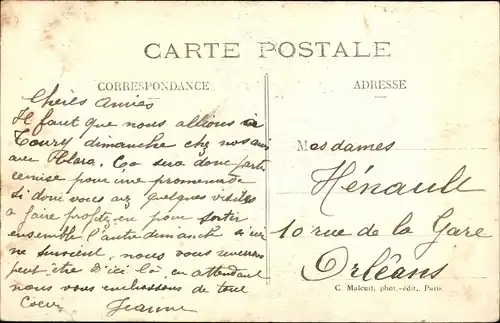 CARTE POSTALE
CORRESPONDANCE
ADRESSE
Chères Amies
Il faut que nous allions à
Toury dimanche chez nos amis
avec Clara. Ça sera donc partie
remise pour une promenade
si donc vous avez quelques visites
à faire profitez-en pour sortir
ensemble l'autre dimanche si rien
ne survient, nous vous reverrons
peut être d'ici là, en attendant
nous vous embrassons de tout
Coeur Jeanne
Mesdames
Hénault
10 rue de la Gare
Orléans
C. Maleuit, phot.-édit., Paris